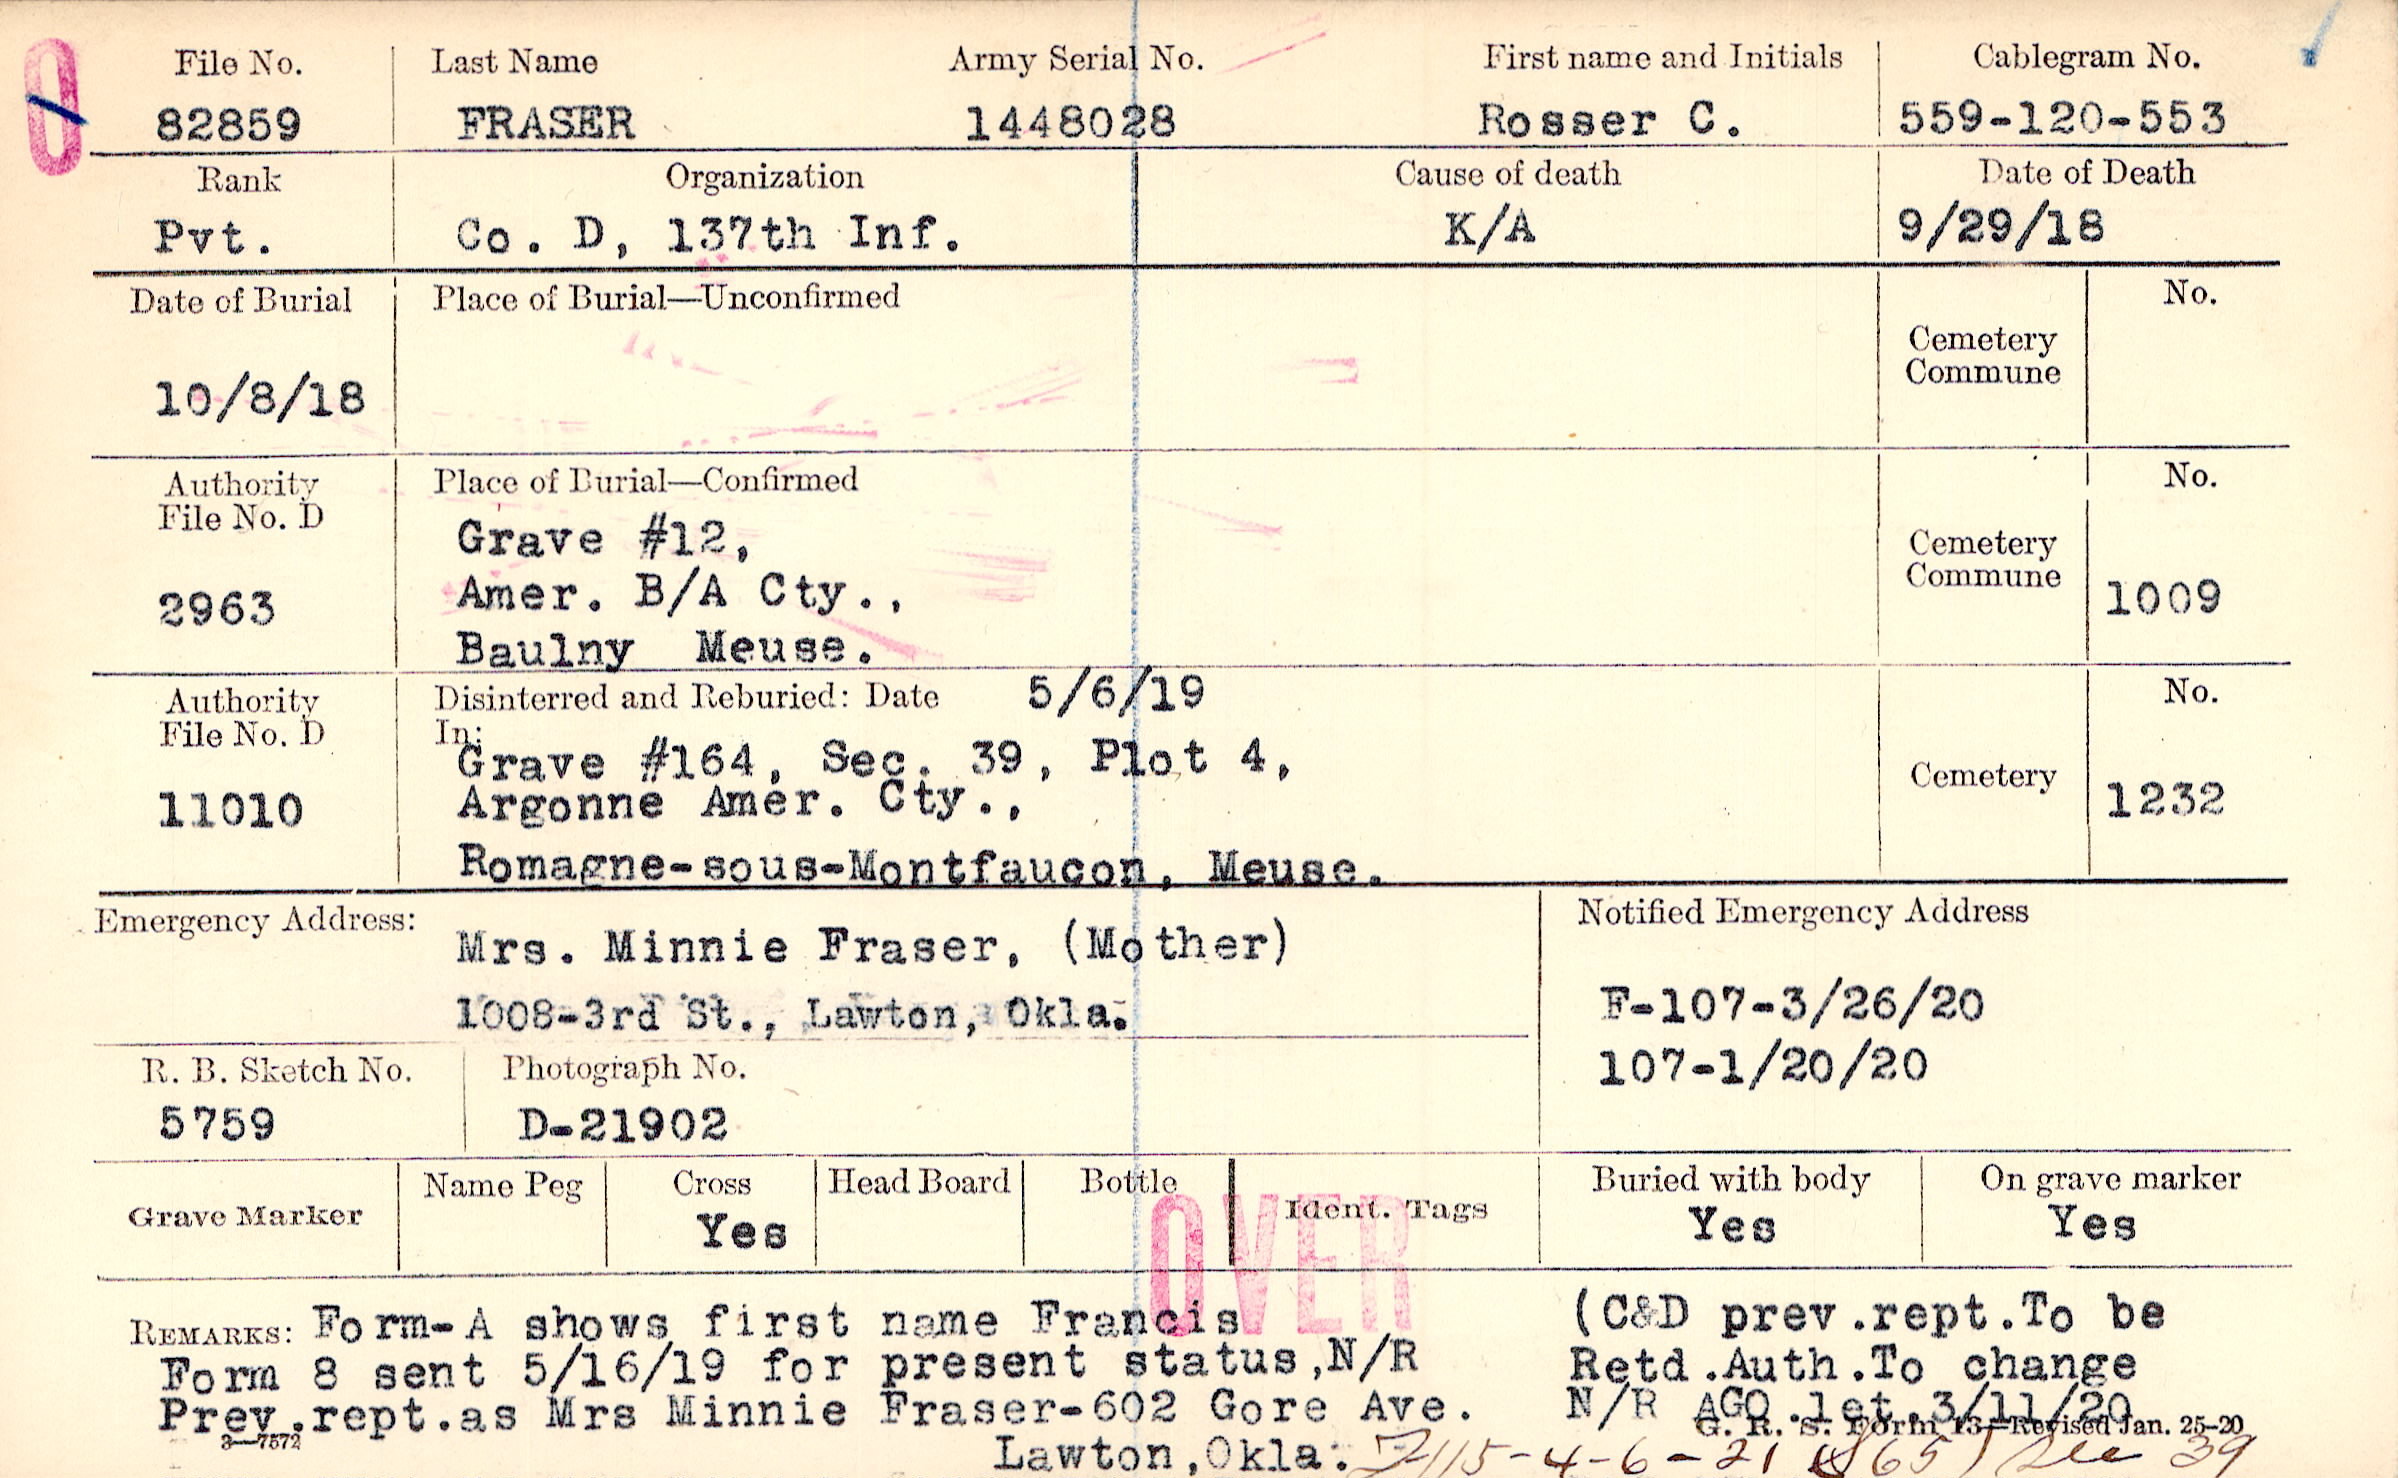 File No. Last Name Army Serial No. First name and Initials Cablegram No.
82859 FRASER 1448028 Rosser C. 559-120-553
Rank Organization Cause of death Date of Death
Pvt. Co. D, 137th Inf. K/A 9/29/18
Date of Burial Place of Burial—Unconfirmed No.
Cemetery
Commune
10/8/18
Authority Place of Burial—Confirmed No.
File No. D
Grave #12,
Cemetery
Commune
2963 Amer. B/A Cty., 1009
Baulny Meuse.
Authority Disinterred and Reburied: Date 5/6/19 No.
File No. D In:
Grave #164, Sec. 39, Plot 4,
Cemetery
11010 Argonne Amer. Cty., 1232
Romagne-sous-Montfaucon, Meuse.
Emergency Address: Notified Emergency Address
Mrs. Minnie Fraser, (Mother)
1008-3rd St., Lawton, Okla. F-107-3/26/20
107-1/20/20
R. B. Sketch No. Photograph No.
5759 D-21902
Grave Marker Name Peg Cross Head Board Bottle Ident. Tags Buried with body On grave marker
Yes Yes Yes
OVER
REMARKS: Form-A shows first name Francis (C&D prev.rept.To be
Form 8 sent 5/16/19 for present status,N/R Retd.Auth.To change
Prev.rept.as Mrs Minnie Fraser-602 Gore Ave. N/R AGO.let.3/11/20
3—7572 G. R. S. Form 13—Revised Jan. 25-20
Lawton,Okla. 115-4-6-21 Sec 39